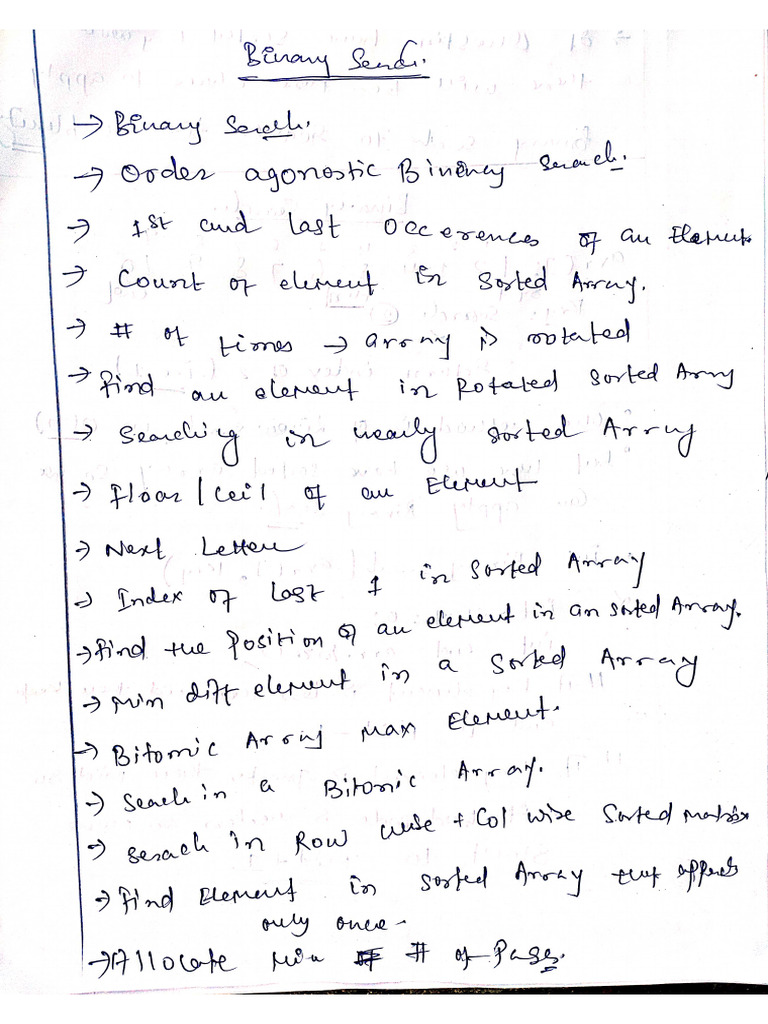 Binary Serach.
→ Binary Serach.
→ Order agonostic Binary Serach.
→ 1st and last occerences of an Element.
→ Count of element in Sorted Array.
→ # of times → array is rotated
→ find an element in Rotated Sorted Array
→ Searching in nearly sorted Array
→ Floor/Ceil of an Element
→ Next Letter
→ Index of Last 1 in Sorted Array
→ Find the Position of an element in an sorted Array.
→ Min diff element in a Sorted Array
→ Bitomic Array Max Element.
→ Seach in a Bitonic Array.
→ Serach in Row wise + Col wise Sorted matrix
→ Find Element in Sorted Array that appears
only once.
→ Allocate Min # of Pages.